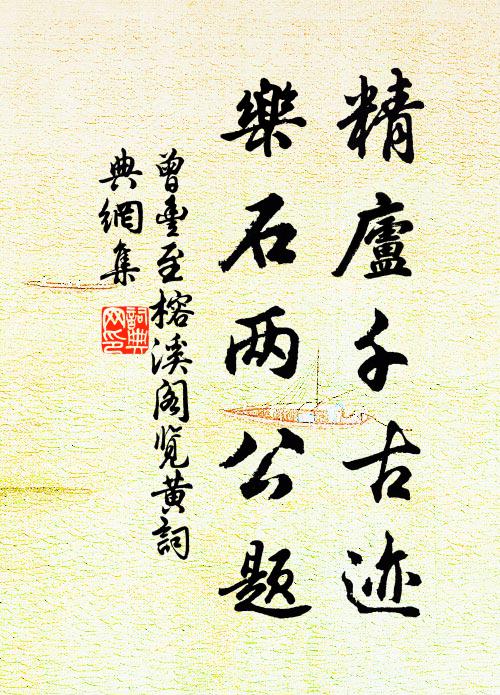 精廬千古迹
樂石两公题
曾豊至榕溪阁览黄詞
典網集
詞典
网印